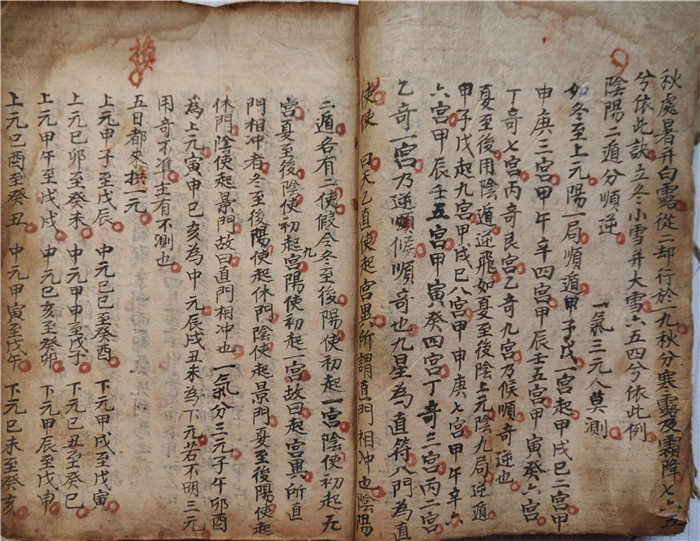 秋處暑并白露從二却行於九秋分寒露及霜降七六五
兮依此訣立冬小雪并大雪六五四兮依此例
陰陽二遁分順逆 一氣三元人莫測
如冬至上元陽一局順遁甲子戊一宮起甲戌己二宮甲
申庚三宮甲午辛四宮甲辰壬五宮甲寅癸六宮
丁奇七宮丙奇艮宮乙奇九宮乃候順奇逆也
夏至後用陰遁逆飛如夏至後陰上元陰九局逆遁
甲子戊起九宮甲戌己八宮甲申庚七宮甲午辛六
六宮甲辰壬五宮甲寅癸四宮丁奇三宮丙二宮
乙奇一宮乃逆順候順奇也九星為直符八門為直
使使 曰天乙直使起宮異所謂直門相冲也陰陽
二遁各有二使假令冬至後陽使初起一宮陰使初起九
宮夏至後陰使初起九宮陽使初起一宮故曰起宮異所直
門相冲者冬至後陽使起休門陰使起景門夏至後陽使起
休門陰使起景門故曰直門相冲也 一氣分三元子午卯酉
為上元寅申巳亥為中元辰戌丑未為下元若不明三元
用奇不准主有不測也
五日都來換一元
上元甲子至戊辰 中元己巳至癸酉 下元甲戌至戊寅
上元己卯至癸未 中元甲申至戊子 下元己丑至癸巳
上元甲午至戊戌 中元己亥至癸卯 下元甲辰至戊申
上元己酉至癸丑 中元甲寅至戊午 下元己未至癸亥